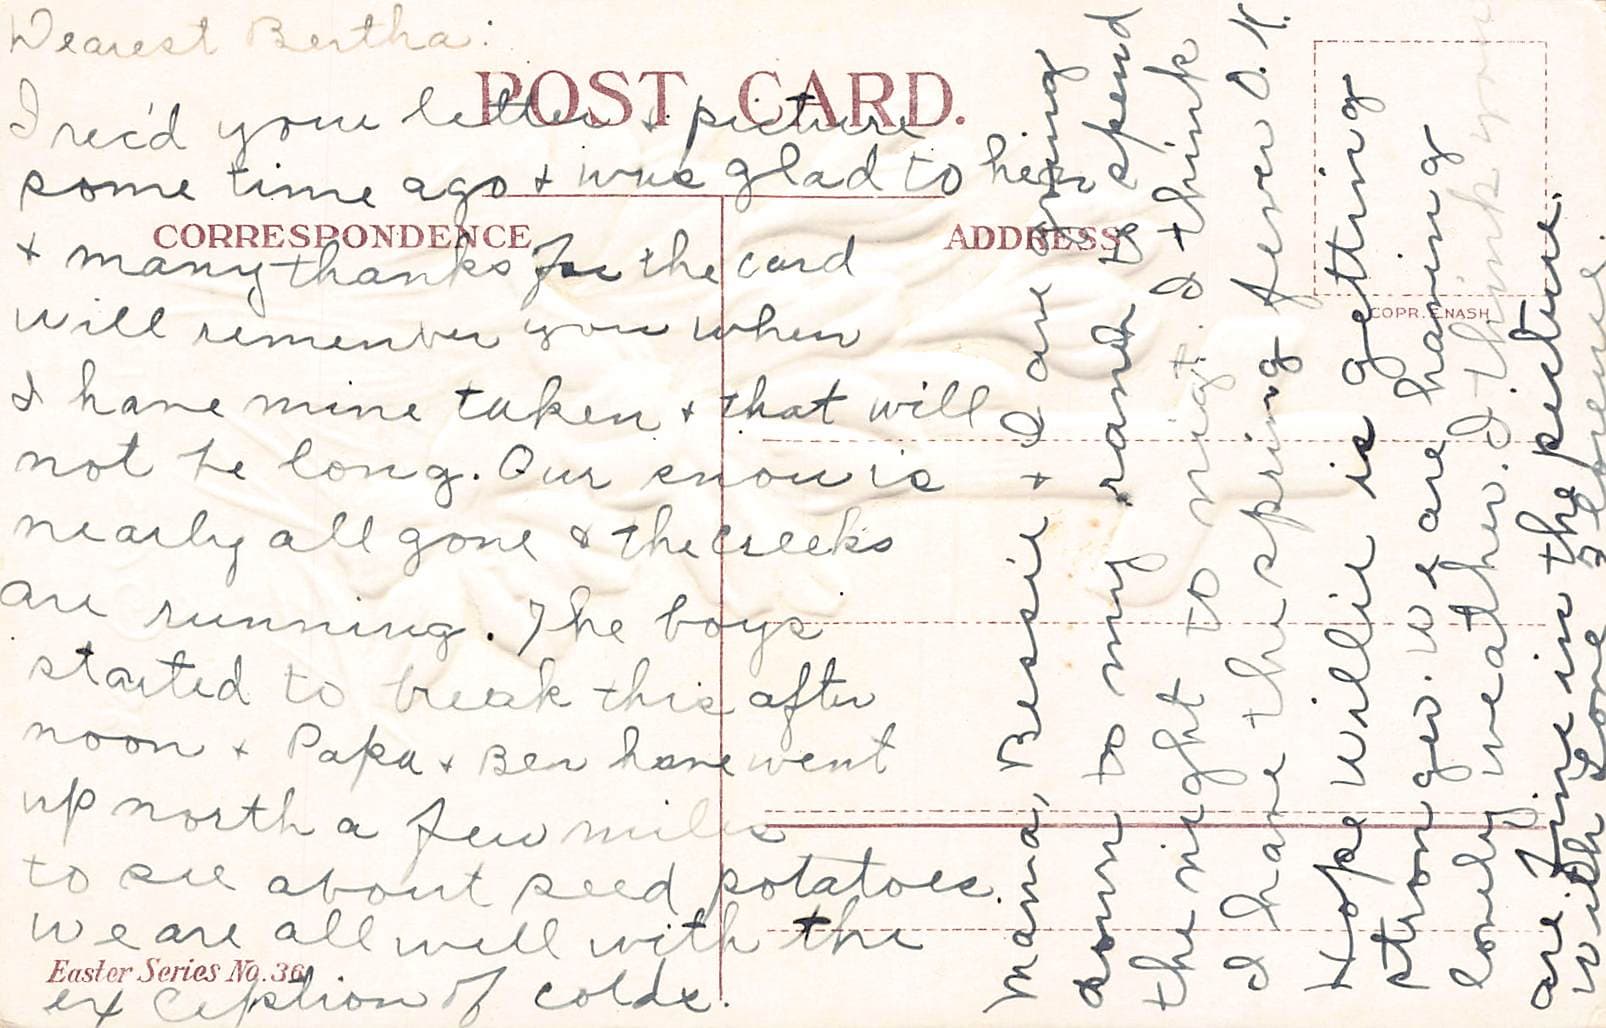 Dearest Bertha:
POST CARD.
I rec'd your letter & picture
some time ago & was glad to hear
CORRESPONDENCE
ADDRESS
& many thanks for the card
will remember you when
I have mine taken & that will
not be long. Our snow is
nearly all gone & the creeks
are running. The boys
started to break this after
noon & Papa & Ben have went
up north a few miles
to see about seed potatoes.
We are all well with the
Easter Series No. 36
exception of colds.
COPR. E. NASH
Mama, Bessie & I are going
down to my ranch to spend
the night to nigt. I think
I have the spring fever O.K.
Hope Willie is getting
stronger. We are having
lovely weather. I think you
are fine in the picture.
With Love Florence.